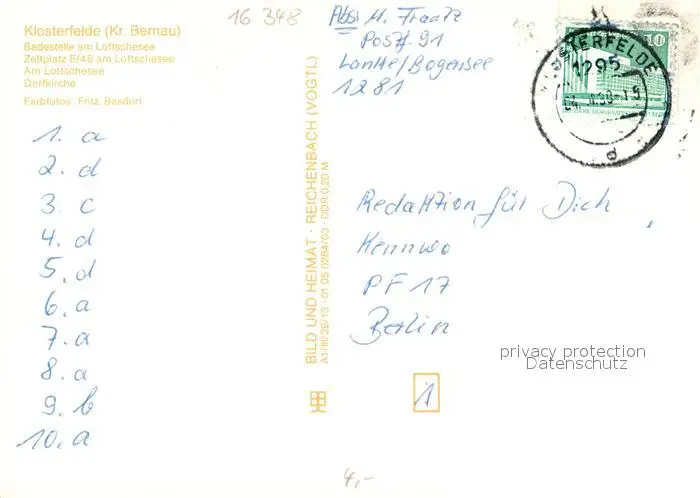 16 348
Klosterfelde (Kr. Bernau)
Badestelle am Lottschesee
Zeltplatz E/46 am Lottschesee
Am Lottschesee
Dorfkirche
Farbfotos: Fritz, Basdorf
1. a
2. d
3. c
4. d
5. d
6. a
7. a
8. a
9. b
10. a
BILD UND HEIMAT · REICHENBACH (VOGTL)
A1/III/26/13 · 01 05 0284/63 · DDR 0,20 M
Abs: M. Fraatz
Postf. 91
Lanke/Bogensee
1281
10
1295
Redaktion für Dich
Kennwo
PF 17
Berlin
privacy protection
Datenschutz
1
4,-